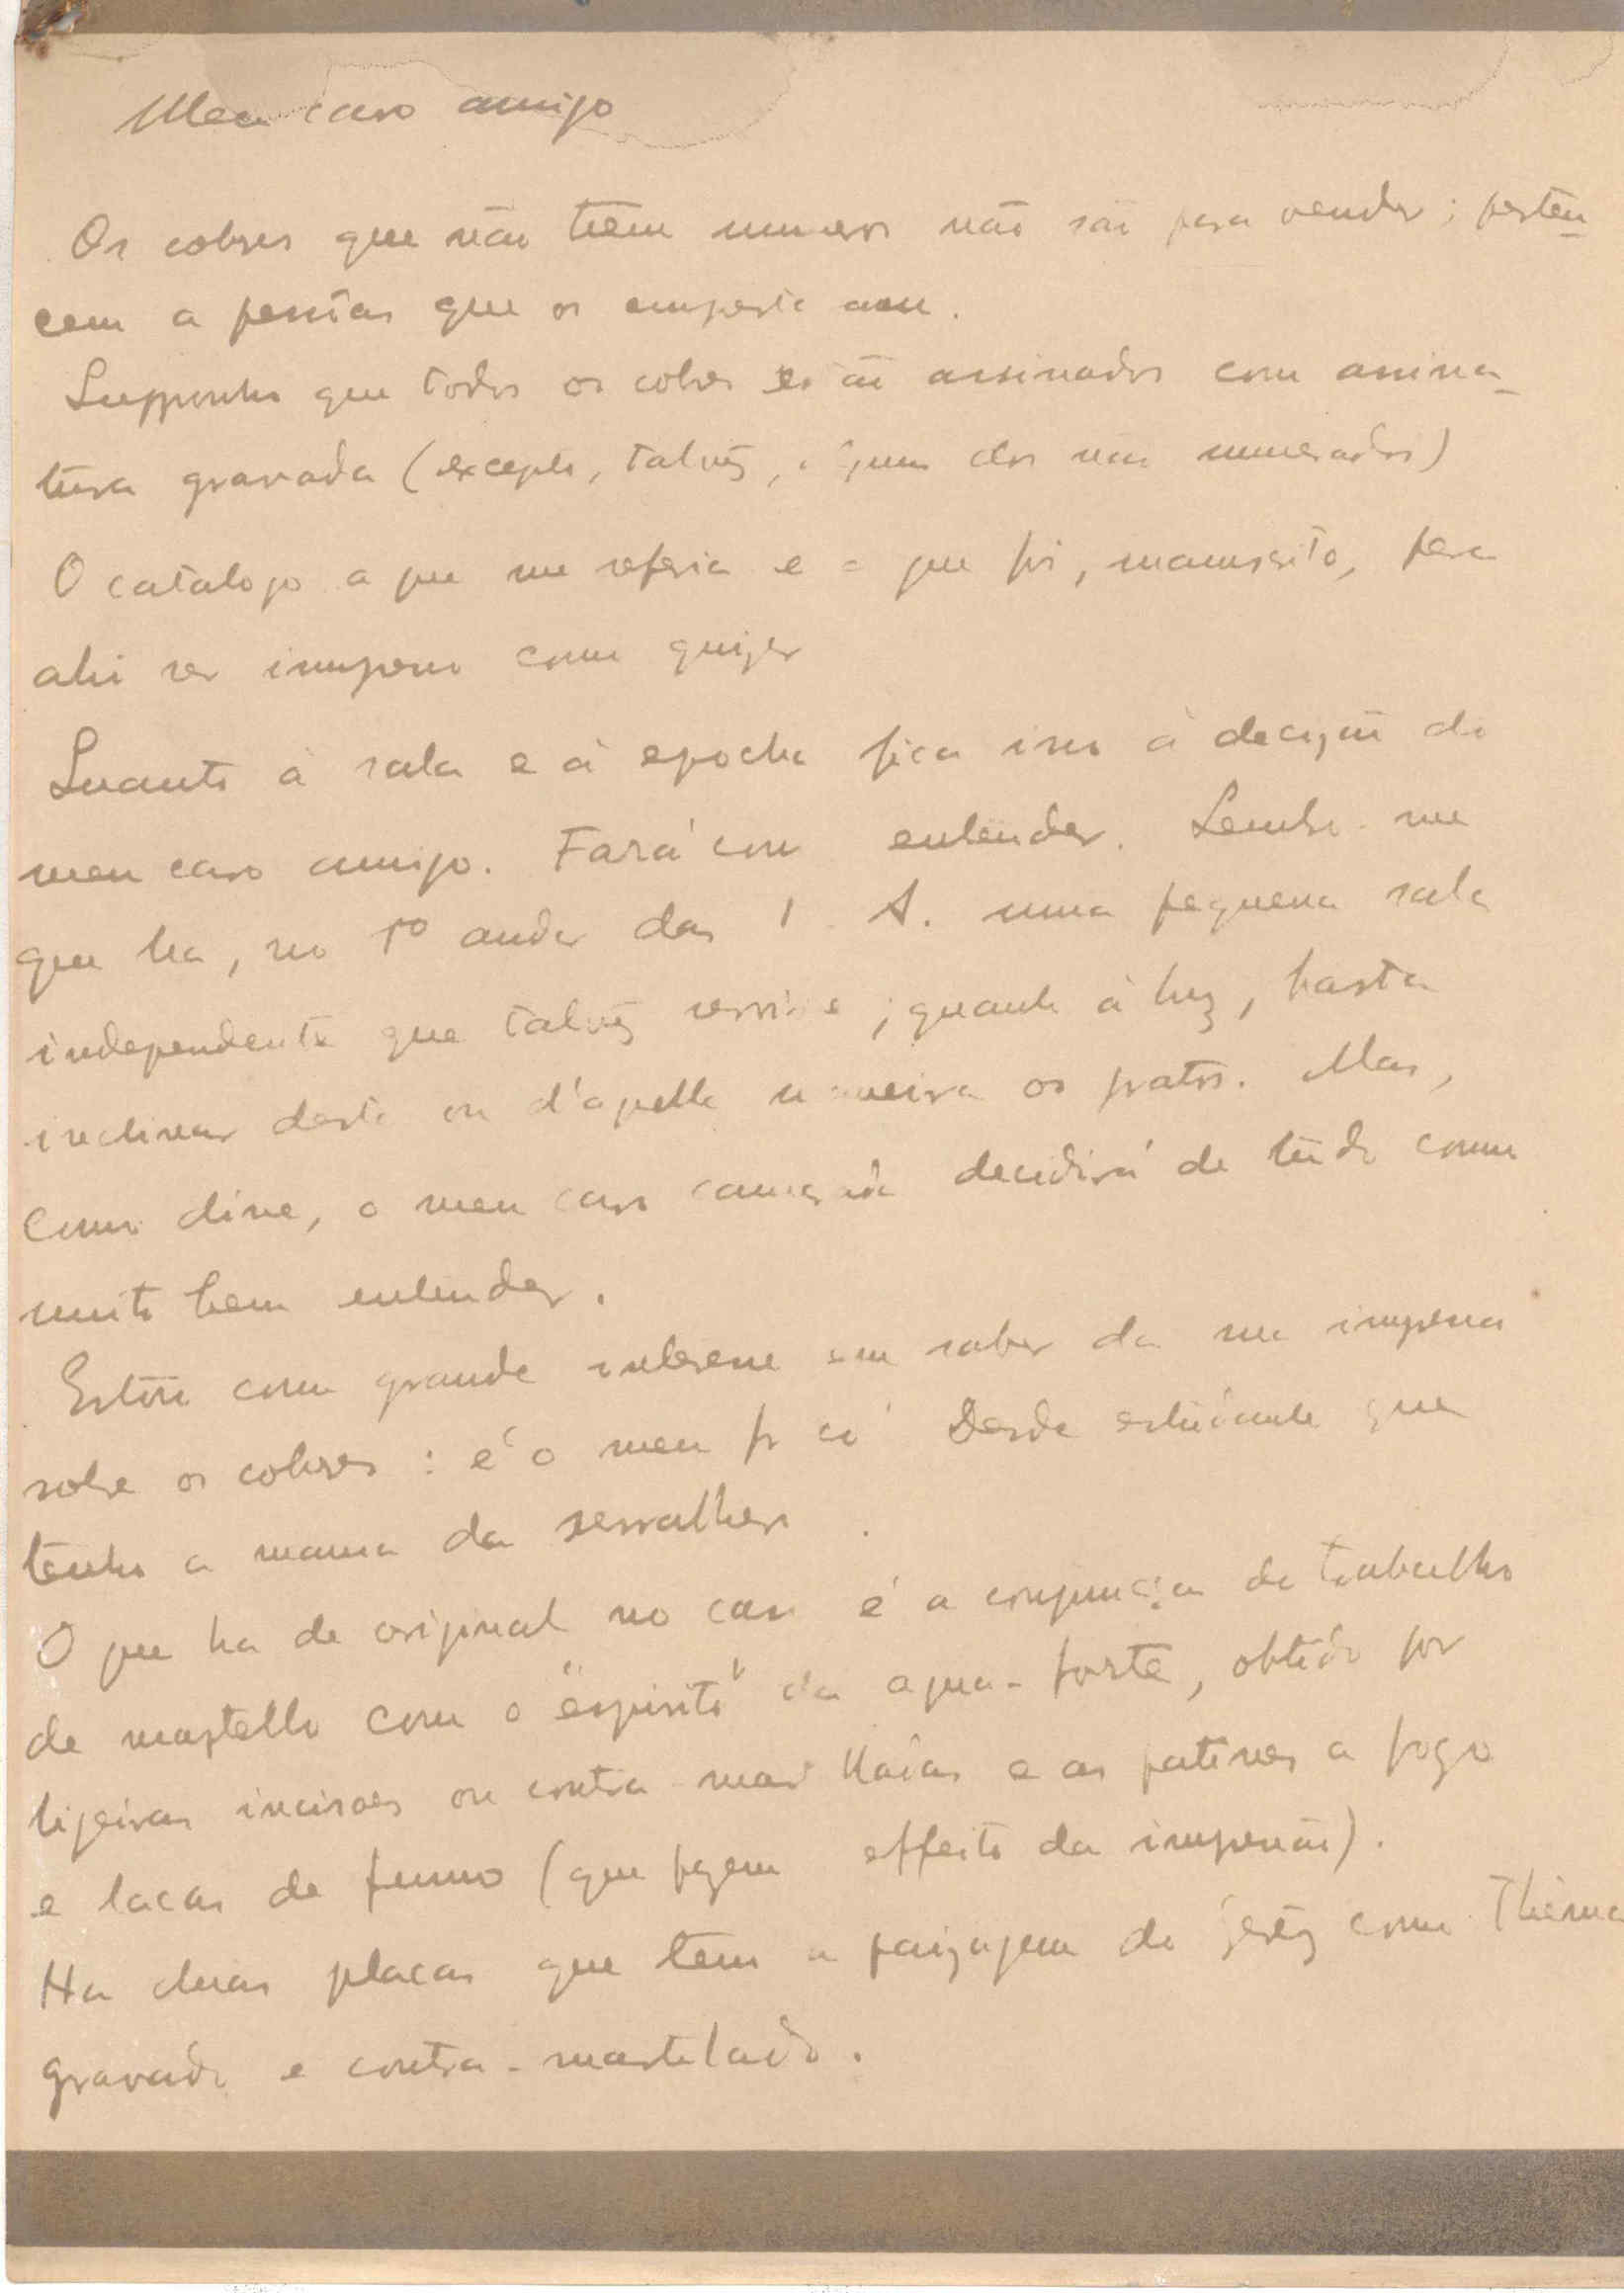 Meu caro amigo
Os cobres que não teem numeros não são para vender; perten-
cem a pessôas que os emprestaram.
Supponho que todos os cobres estão assinados com assina-
tura gravada (excepto, talvês, alguns dos não numerados)
O catalogo a que me referia e o que foi, manuscrito, para
ahi ser impresso como quizer
Quanto à sala e à epocha fica isso à decizão do
meu caro amigo. Fará como entender. Lembro-me
que ha, no 1º andar das A. uma pequena sala
independente que talvês servisse; quanto à luz, basta
inclinar desta ou d'aquella maneira os pratos. Mas,
como disse, o meu caro camarada decidirá de tudo como
muito bem entender.
Estou com grande interesse em saber da sua impressão
sobre os cobres: é o meu Desde estudante que
tenho a mania da serralheria.
O que ha de original no caso é a conjuncção do trabalho
de martello com o "espirito" da agua-forte, obtido por
ligeiras incisoes ou contra-martelladas e as patines a fogo
e lacas de fumo (que fazem effeito da impressão).
Ha duas placas que tem a paizagem do Gerêz como Thema
gravado e contra-martelado.